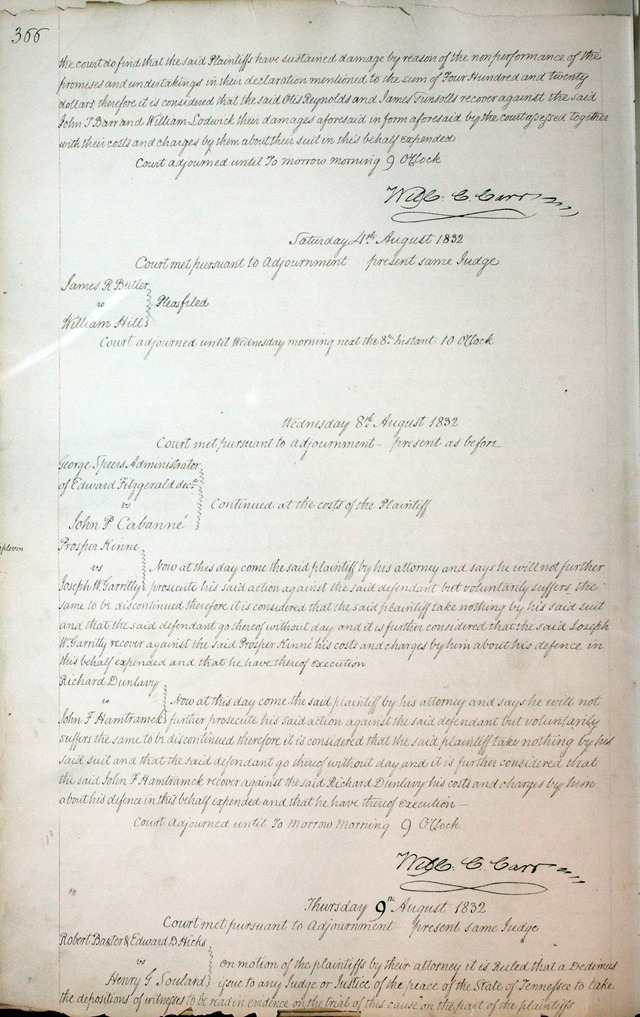 366
the court do find that the said Plaintiffs have sustained damage by reason of the non performance of the
promises and undertakings in their declaration mentioned to the sum of Four Hundred and twenty
dollars, therefore it is considered that the said Otis Reynolds and James Tunstalls recover against the said
John T Barr and William Lodwick their damages aforesaid in form aforesaid by the court assessed together
with their costs and charges by them about their suit in this behalf expended
Court adjourned until To morrow morning 9 OClock
Will. C. Carr
Saturday 4th August 1832
Court met pursuant to Adjournment present same Judge
James R Butler
vs
Plea filed
William Hill
Court adjourned until Wednesday morning next the 8th Instant 10 OClock
Wednesday 8th August 1832
Court met pursuant to adjournment - present as before
George Speers Administrator
of Edward Fitzgerald decd
Continued at the costs of the Plaintiff
vs
John P Cabanné
plevin
Prosper Kinne
vs
Now at this day come the said plaintiff by his attorney and says he will not further
Joseph W. Garritty prosecute his said action against the said defendant but voluntarily suffers the
same to be discontinued therefore it is considered that the said plaintiff take nothing by his said suit
and that the said defendant go thereof without day and it is further considered that the said Joseph
W. Garritty recover against the said Prosper Kinné his costs and charges by him about his defence in
this behalf expended and that he have thereof execution
Richard Dunlavy
vs
Now at this day come the said plaintiff by his attorney and says he will not
John F Hamtramck further prosecute his said action against the said defendant but voluntarily
suffers the same to be discontinued therefore it is considered that the said plaintiff take nothing by his
said suit and that the said defendant go thereof without day and it is further considered that
the said John F. Hamtramck recover against the said Richard Dunlavy his costs and charges by him
about his defence in this behalf expended and that he have thereof execution -
Court Adjourned until To morrow Morning 9 OClock
Will C. Carr
Thursday 9th August 1832
Court met pursuant to Adjournment present same Judge
Robert Baxter & Edward D. Hicks
vs
on motion of the plaintiffs by their attorney it is Ruled that a Dedimus
Henry G. Soulard issue to any Judge or Justice of the peace of the State of Tennessee to take
the depositions of witnesses to be read in evidence on the trial of this cause on the part of the plaintiffs